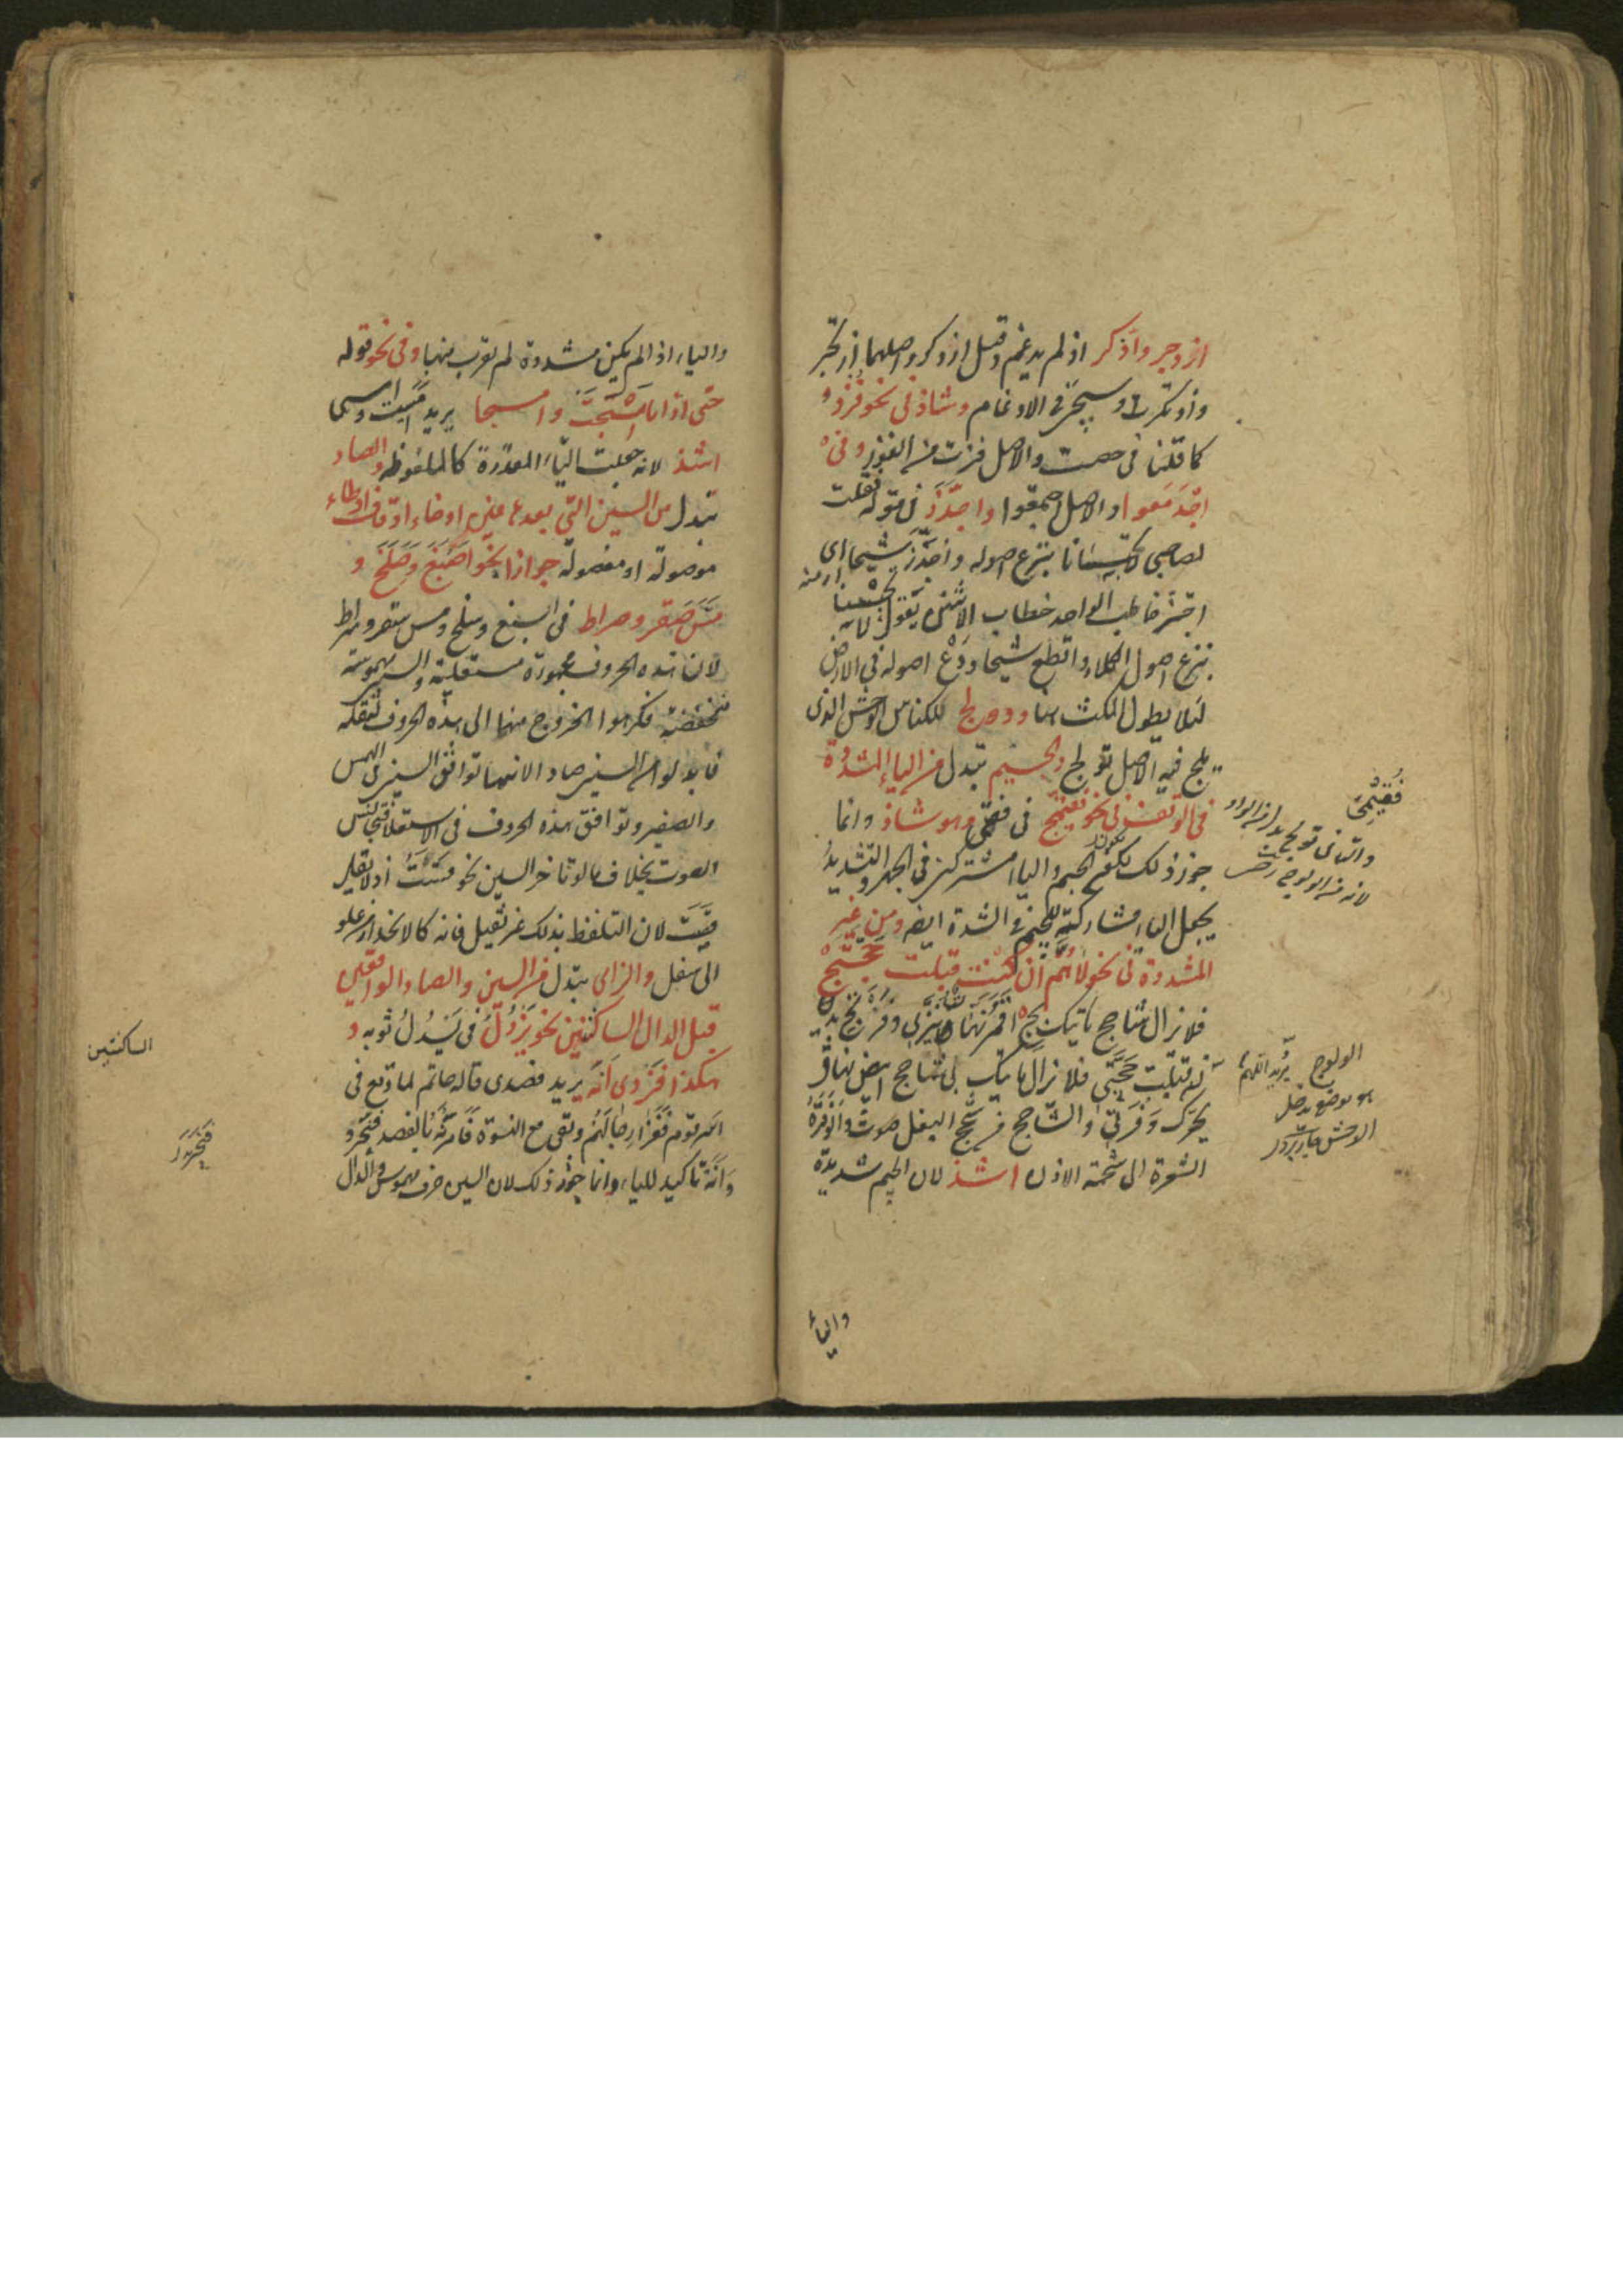 ازدجر واذكر اذ لم يدغم وقيل اذدكر واصلهما ازتجر
واذتكر وسيجئ في الادغام وشاذ في نحو فزد و
كما قلنا في حصت والاصل فزت من الفوز وفي
اجدمعوا والاصل اجتمعوا واجدز في قوله فقلت
لصاحبي لا تحبسانا بنزع اصوله واجدز شيحا اي
اجتز خاطب الواحد خطاب الاثنين يقول لا تحبسنا
بنزع اصول الكلاء واقطع شيحا ودع اصوله في الارض
لئلا يطول المكث هنا ودولج للكناس الوحش الذي
يلج فيه الاصل تولج والجيم تبدل من الياء المشددة
في الوقف في نحو فقيمج في فقيمي وهو شاذ وانما
جوز ذلك لكون الجيم والياء مشتركتين في الجهر والتشديد
يجعل الياء مشاركته للجيم في الشدة ايضا ومن غير
المشددة في نحو لاهم ان كنت قبلت حجتج
فلا يزال شاحج ياتيك بج اقمر نهات ينزي وفرتج يريد
قبلت حجتي فلا يزال ياتيك بي شاحج ابيض نهاق
يحرك وفرتي والشاحج من شحج البغل صوت والوفرة
الشعرة الى شحمة الاذن اشذ لان الجيم شديدة
والياء
فقيمي
والتاء في تولج بدل من الواو
لانه من الولوج
الولوج يريد اللهم
هو موضع يدخل
الوحش
والياء اذا لم يكن مشددة لم تقرب منها وفي نحو قوله
حتى اذا ما امسجت وامسجا يريد امسيت وامسى
اشذ لانه جعلت الياء المقدرة كالملفوظة والصاد
تبدل من السين التي بعدها غين او خاء او قاف او طاء
موصولة او مفصولة جوازا نحو اصبغ وصلخ و
مس صقر وصراط في اسبغ وسلخ ومس سقر وسراط
لان هذه الحروف مجهورة مستعلية والسين مهموسة
منخفضة فكرهوا الخروج منها الى هذه الحروف لثقله
فابدلوا من السين صادا لانها توافق السين في الهمس
والصفير وتوافق هذه الحروف في الاستعلاء فتجانس
الصوت بخلاف ما لو تاخر السين نحو قست اذ لا يقال
قصت لان التلفظ بذلك غير ثقيل فانه كالانحدار من علو
الى سفل والزاي تبدل من السين والصاد الواقعين
قبل الدال الساكنتين نحو يزدل في يسدل ثوبه و
هكذا فزدي انه يريد فصدي قاله حاتم لما وقع في
اسر قوم فغزا رجالهم وبقي مع النسوة فامرنه بالفصد فنحر و
وانه تاكيد للياء وانما جوز ذلك لان السين حرف مهموس والدال
الساكنتين